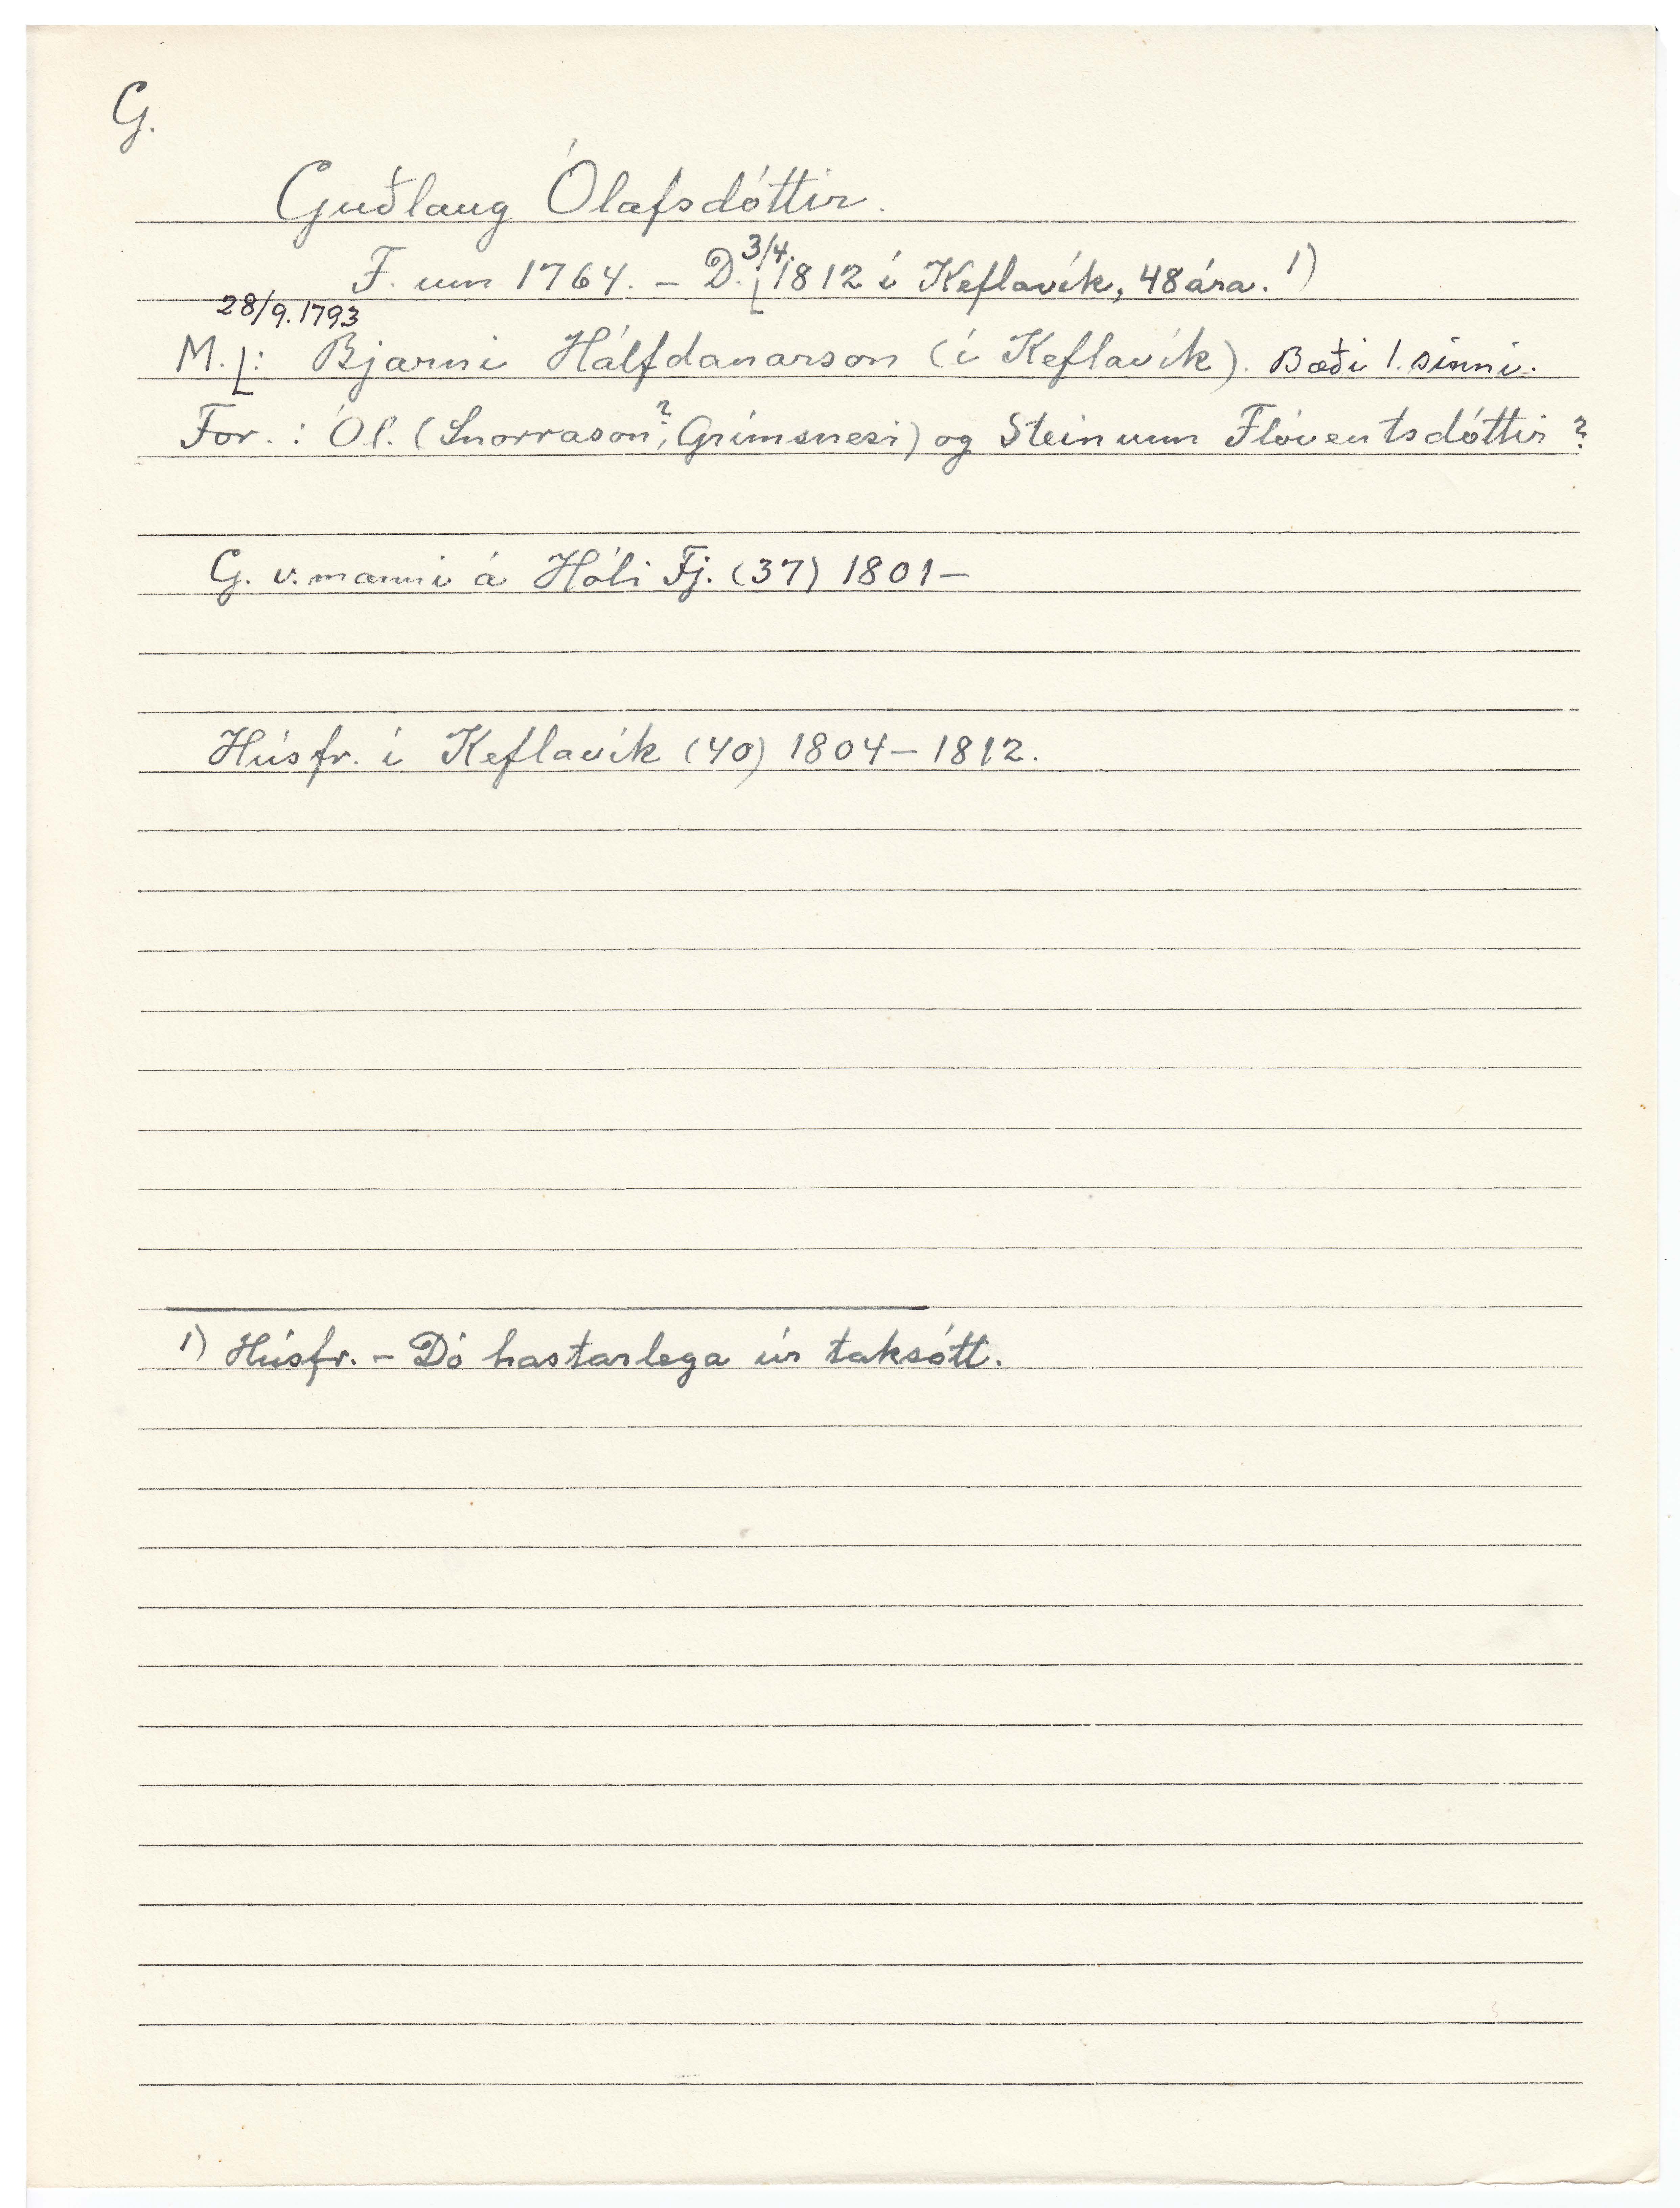 G.
Guðlaug Ólafsdóttir.
F. um 1764. – D. 3/4. 1812 í Keflavík, 48 ára. 1)
28/9. 1793
M. : Bjarni Hálfdanarson (í Keflavík). Bæði 1. sinni.
For. : Ól. (Snorrason?, Grímsnesi) og Steinunn Flóventsdóttir ?
G. v. manni á Hóli Fj. (37) 1801 –
Húsfr. í Keflavík (40) 1804 – 1812.
1) Húsfr. – Dó hastarlega úr taksótt.